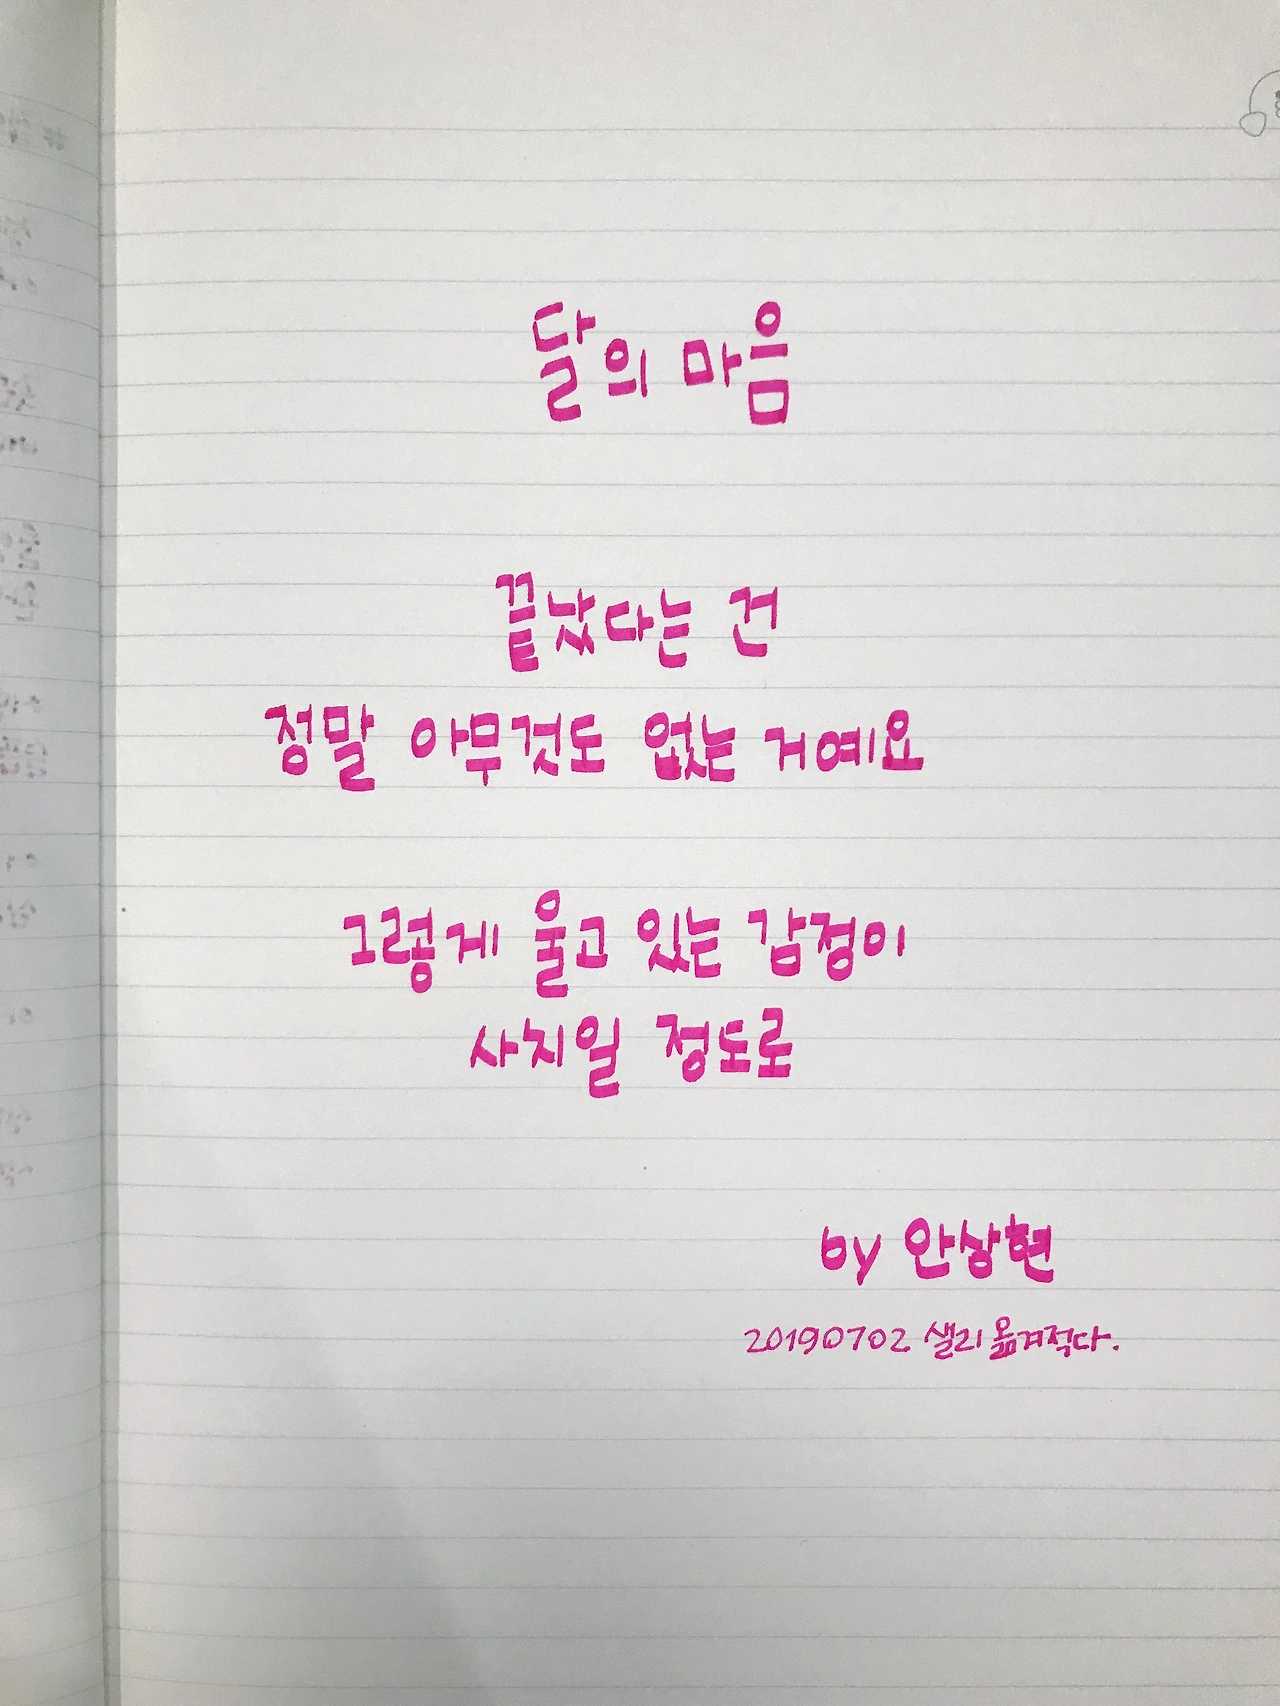 달의 마음
끝났다는 건
정말 아무것도 없는 거예요
그렇게 울고 있는 감정이
사치일 정도로
by 안상현
20190702 샐리 옮겨적다.